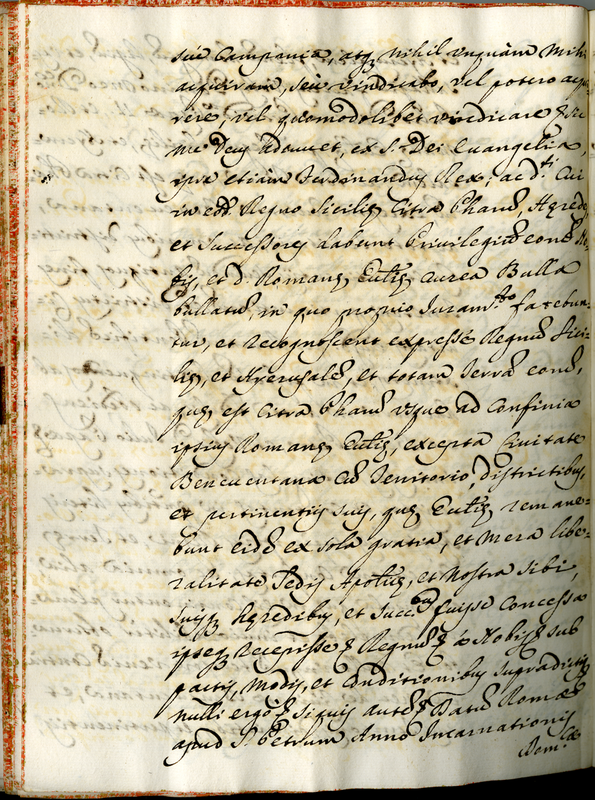 suę Campanię, atq; nihil unquàm Mihi
acquiram, seù vindicabo, vel potero acqui
rere, vel quomodolibet vindicare & sic
me Deus adiuvet, et S.ta Dei Evangelia,
ipse etiàm Ferdinandus Rex, ac d.ti sui
in eod. Regno Sicilię Citra Pharũ, Hęredes
et Successores dabunt Privilegiũ eorũ
et d. Romanę Ecclię aurea Bulla
bullatũ, in quo proprio Juram.to fatebun-
tur, et recognoscent expressè Regnũ Sici-
lię, et Hyerusalẽ, et totam Terrã eorũ,
quę est Citra Pharũ usque ad Confinia
ipsius Romanę Ecclię, excepta Civitate
Beneventana cũ Territorio, districtibus,
et pertinentijs suis, quę Ecclię remane-
bunt eidẽ ex sola gratia, et mera libe-
ralitate Sedis Aplicę, et Nostra sibi,
suisq; hęredibus, et Succ.bus fuisse Concessa
ipseq; recepisse & Regnũ & à Nobis & sub
pactis, Modis, et Conditionibus supradictis
nulli ergo & siquis autẽ & Datũ Romę
apud S. Petrum Anno Incarnationis
Dom.cę